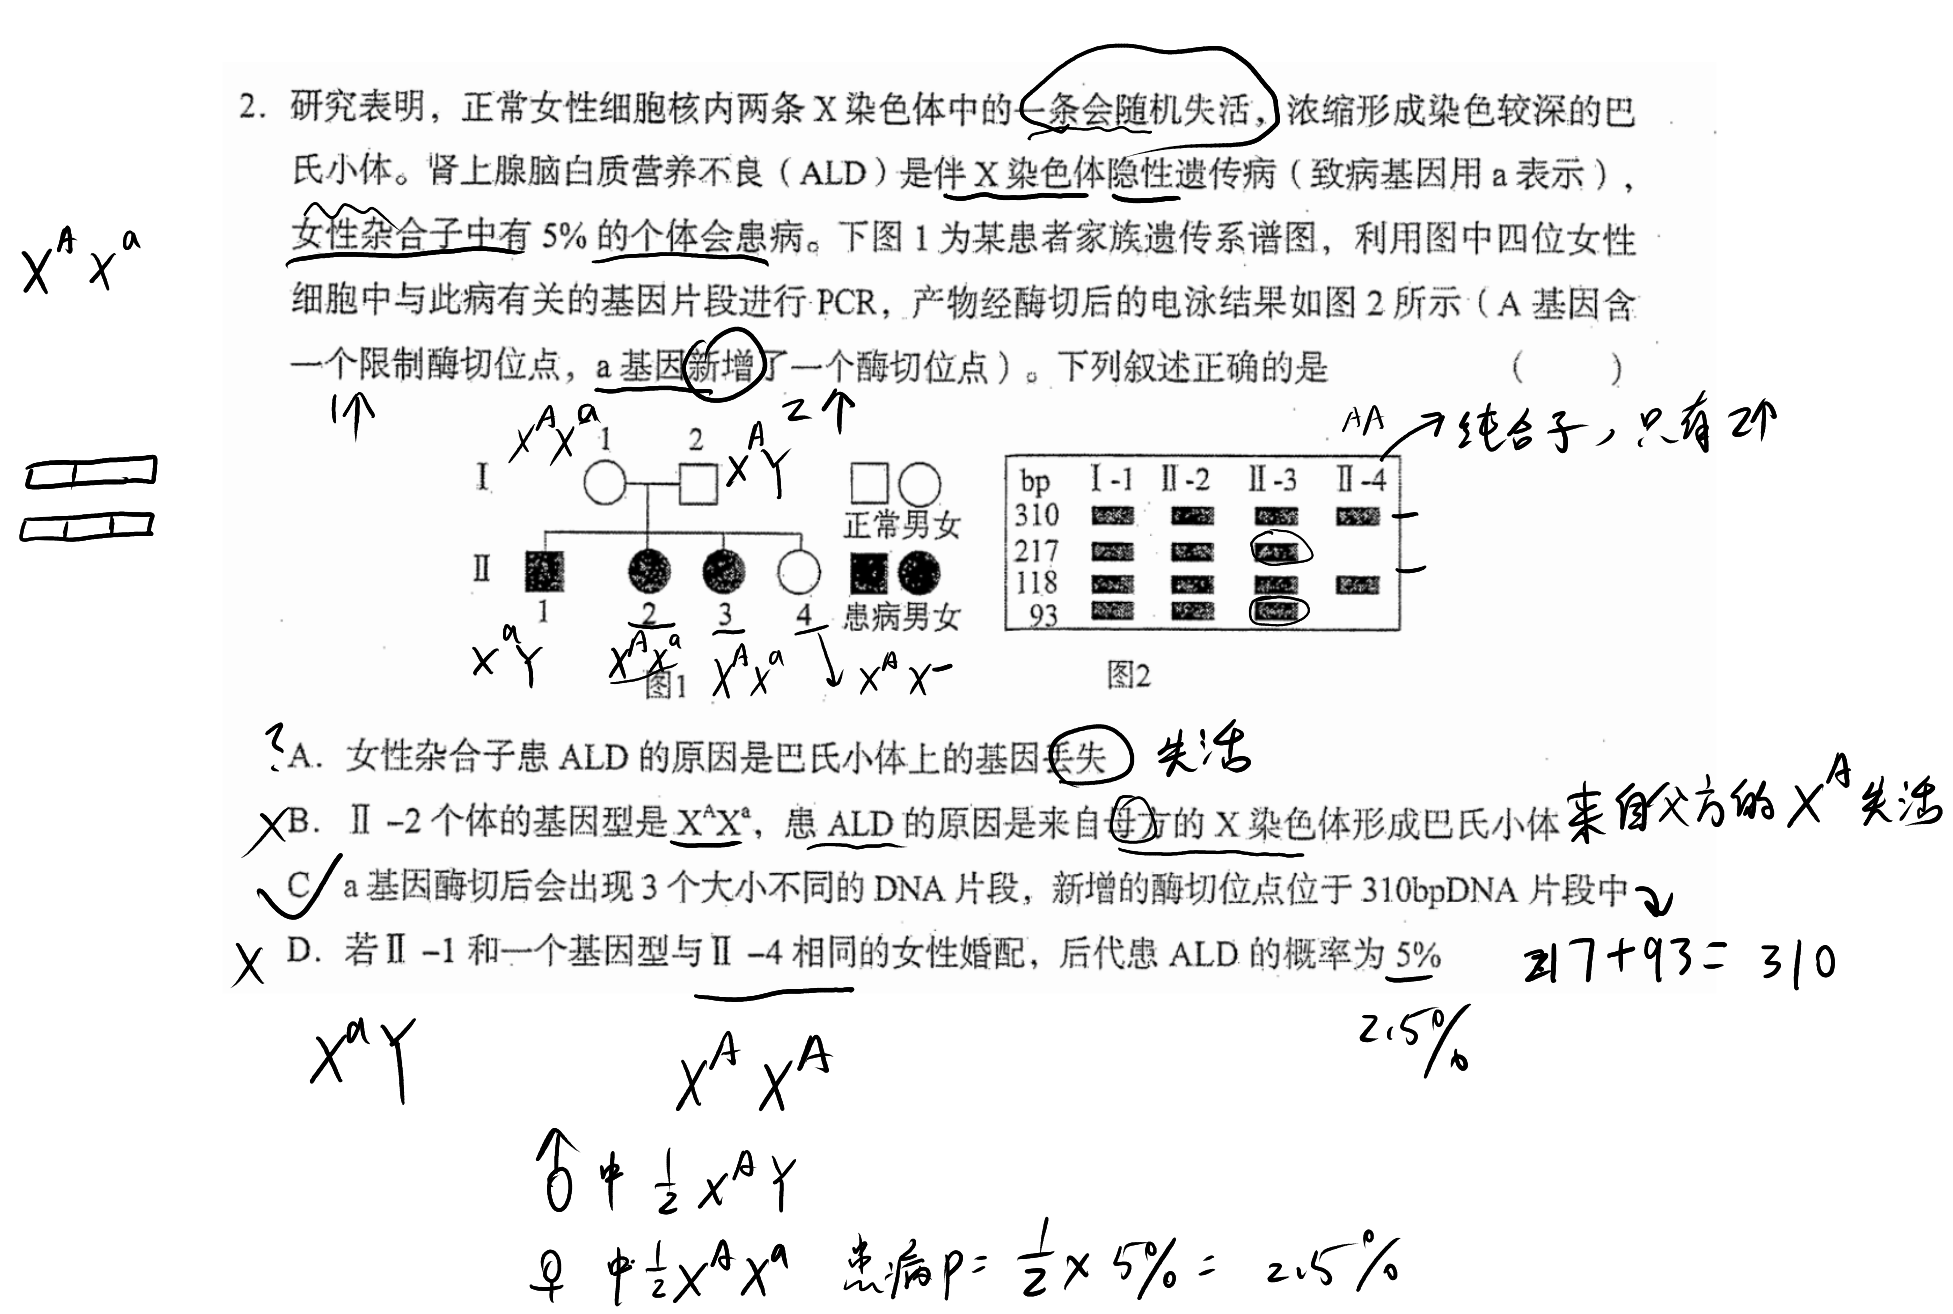 2. 研究表明，正常女性细胞核内两条 X 染色体中的一条会随机失活，浓缩形成染色较深的巴
氏小体。肾上腺脑白质营养不良（ALD）是伴 X 染色体隐性遗传病（致病基因用 a 表示），
女性杂合子中有 5% 的个体会患病。下图 1 为某患者家族遗传系谱图，利用图中四位女性
X^A X^a
细胞中与此病有关的基因片段进行 PCR，产物经酶切后的电泳结果如图 2 所示（A 基因含
一个限制酶切位点，a 基因新增了一个酶切位点）。下列叙述正确的是 （ ）
1个 2个
AA → 纯合子，只有2个
X^A X^a 1 2 X^A Y
Ⅰ
正常男女
Ⅱ
1 2 3 4 患病男女
X^a Y X^A X^a X^A X^a X^A X^-
图1
bp Ⅰ-1 Ⅱ-2 Ⅱ-3 Ⅱ-4
310
217
118
93
图2
? A. 女性杂合子患 ALD 的原因是巴氏小体上的基因丢失 失活
X B. Ⅱ-2 个体的基因型是 X^A X^a，患 ALD 的原因是来自母方的 X 染色体形成巴氏小体 来自父方的 X^A 失活
✓ C a 基因酶切后会出现 3 个大小不同的 DNA 片段，新增的酶切位点位于 310bpDNA 片段中
X D. 若Ⅱ-1 和一个基因型与Ⅱ-4 相同的女性婚配，后代患 ALD 的概率为 5%
217+93=310
2.5%
X^a Y X^A X^A
♂ 中 1/2 X^A Y
♀ 中 1/2 X^A X^a 患病P= 1/2 × 5% = 2.5%